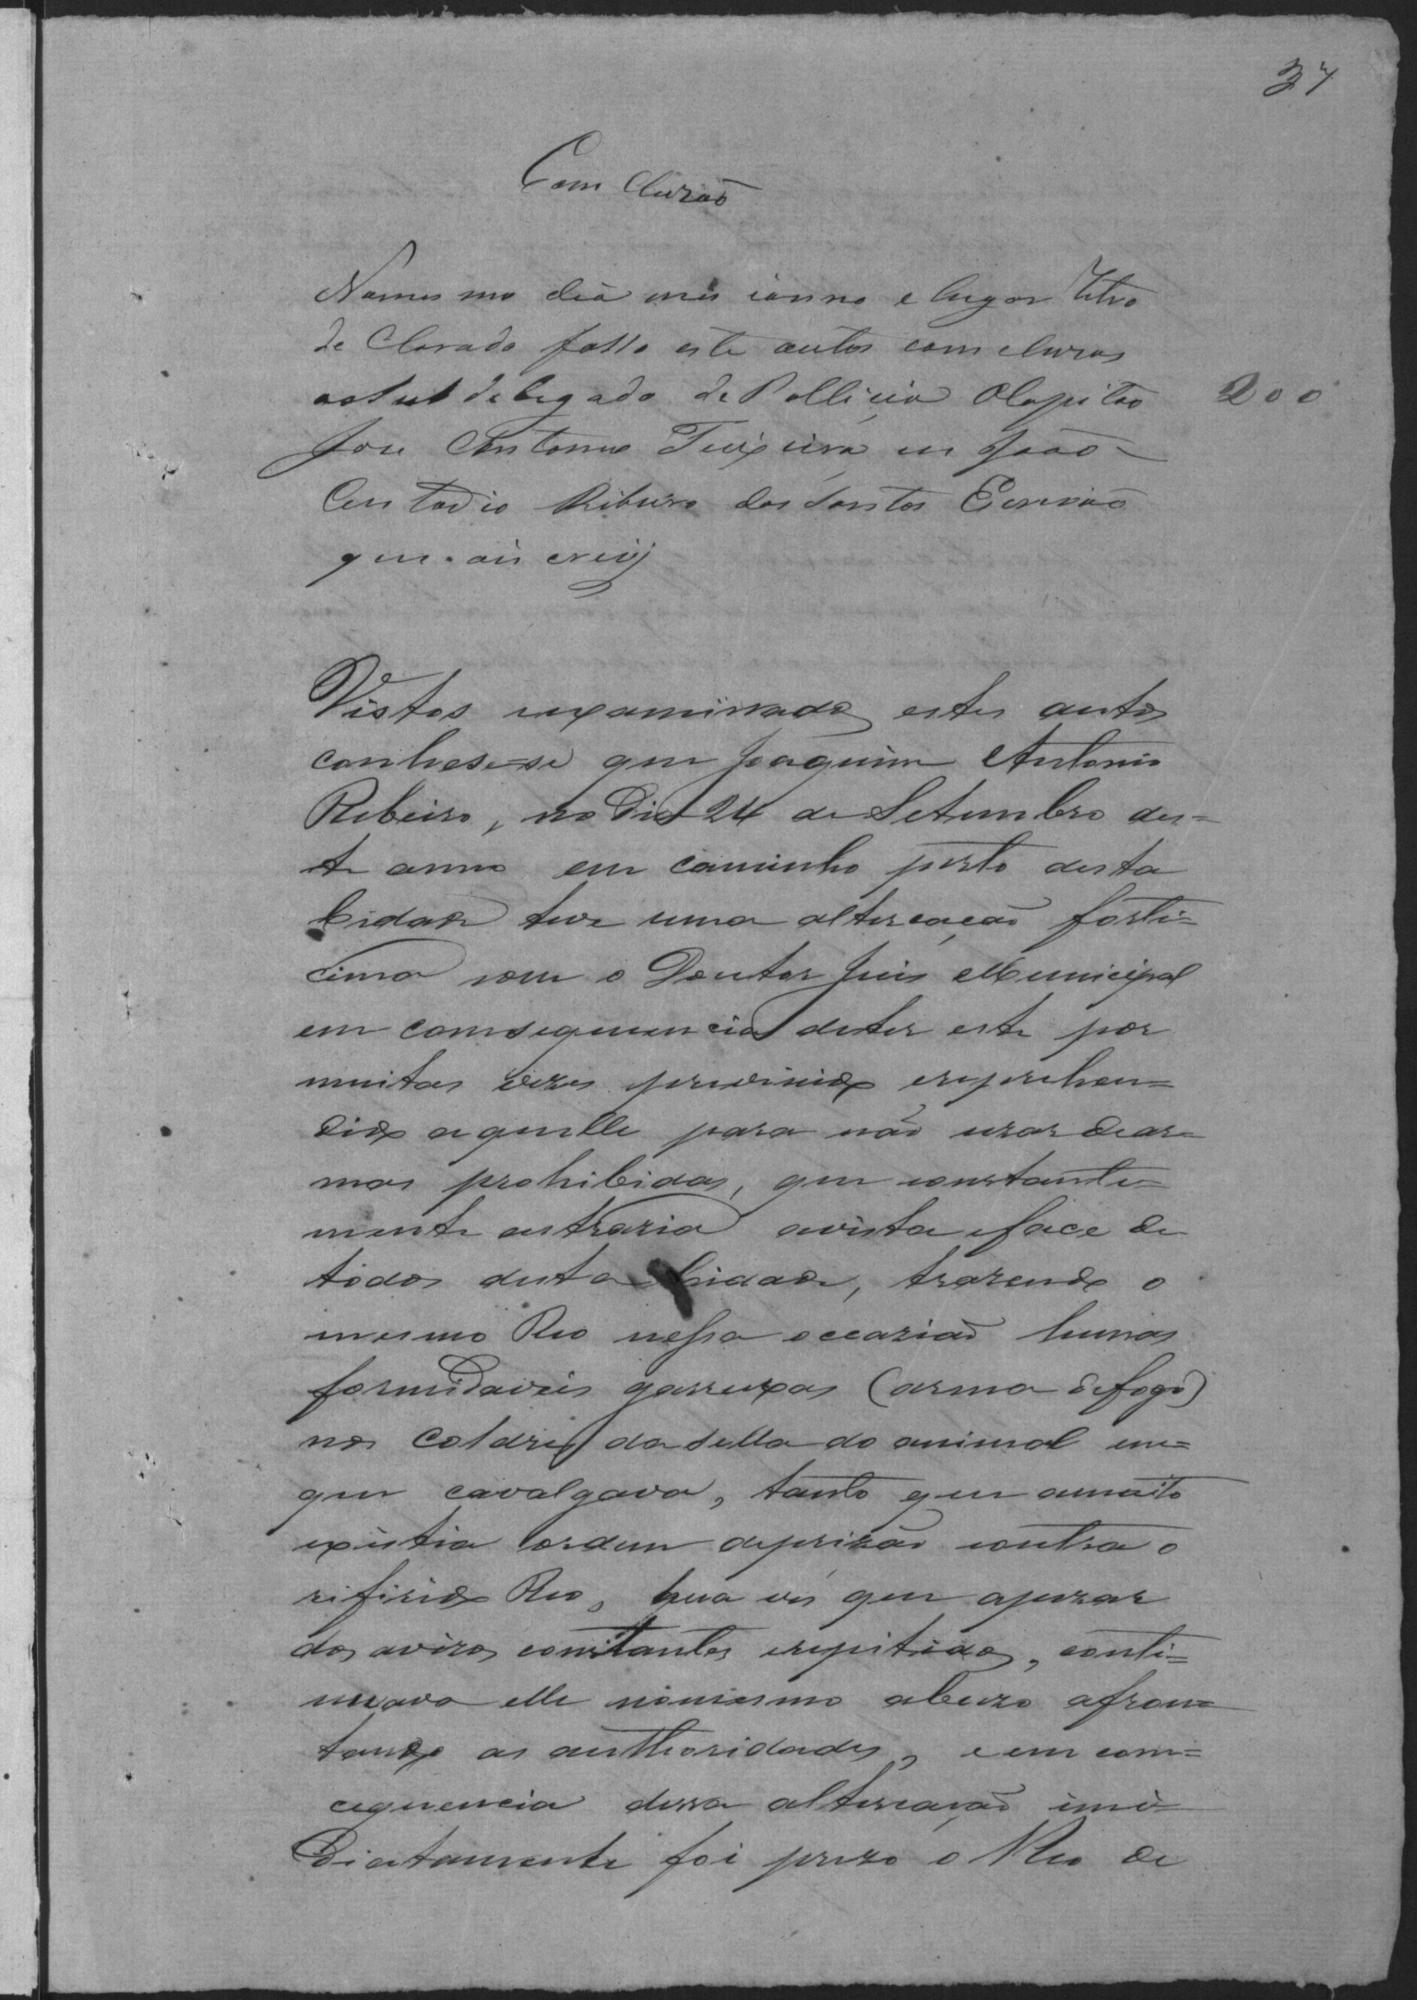 37
Com cluzão
Номes mo dia mes ianno e lugar Retro
de Clarado fasso este autos com cluzos
ao Sub delegado de Pollicia Capitão
200
Jose Antonio Teixeira eu João
Custodio Ribeiro dos Santos Escrivão
que as crevij
Vistos eexaminados estes autos
conhese-se que Joaquim Antonio
Ribeiro, no Dia 24 de Setembro des=
te anno em caminho perto desta
Cidade teve uma altercação forti=
cima com o Doutor Juis Municipal
em comsequencia deter este por
muitas vezes previnido ereprehen=
dido aquelle para não uzar dear=
mas prohibidas, que constante=
mente astrazia avista eface de
todos desta Cidade, trazendo o
mesmo Reo nessa occazião humas
formidaveis garruxas (arma de fogo)
nos coldres da sella do animal em=
que cavalgava, tanto que amuito
existia ordem deprizão contra o
rifirido Reo, hua ves que apezar
dos avizos constantes erepitidos, conti=
nuava elle nomesmo abuzo afron=
tando as authoridades, e em com=
cequencia dessa altercação imi=
Diatamente foi prezo o Reo de